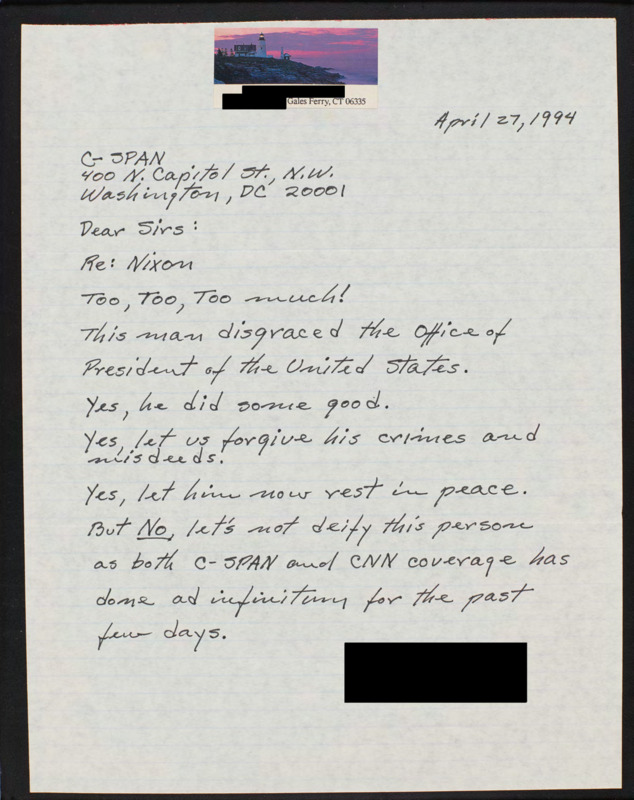 Gales Ferry, CT 06335
April 27, 1994
C-SPAN
400 N. Capitol St., N.W.
Washington, DC 20001
Dear Sirs:
Re: Nixon
Too, Too, Too much!
This man disgraced the Office of
President of the United States.
Yes, he did some good.
Yes, let us forgive his crimes and
misdeeds.
Yes, let him now rest in peace.
But No, let's not deify this person
as both C-SPAN and CNN coverage has
done ad infinitum for the past
few days.